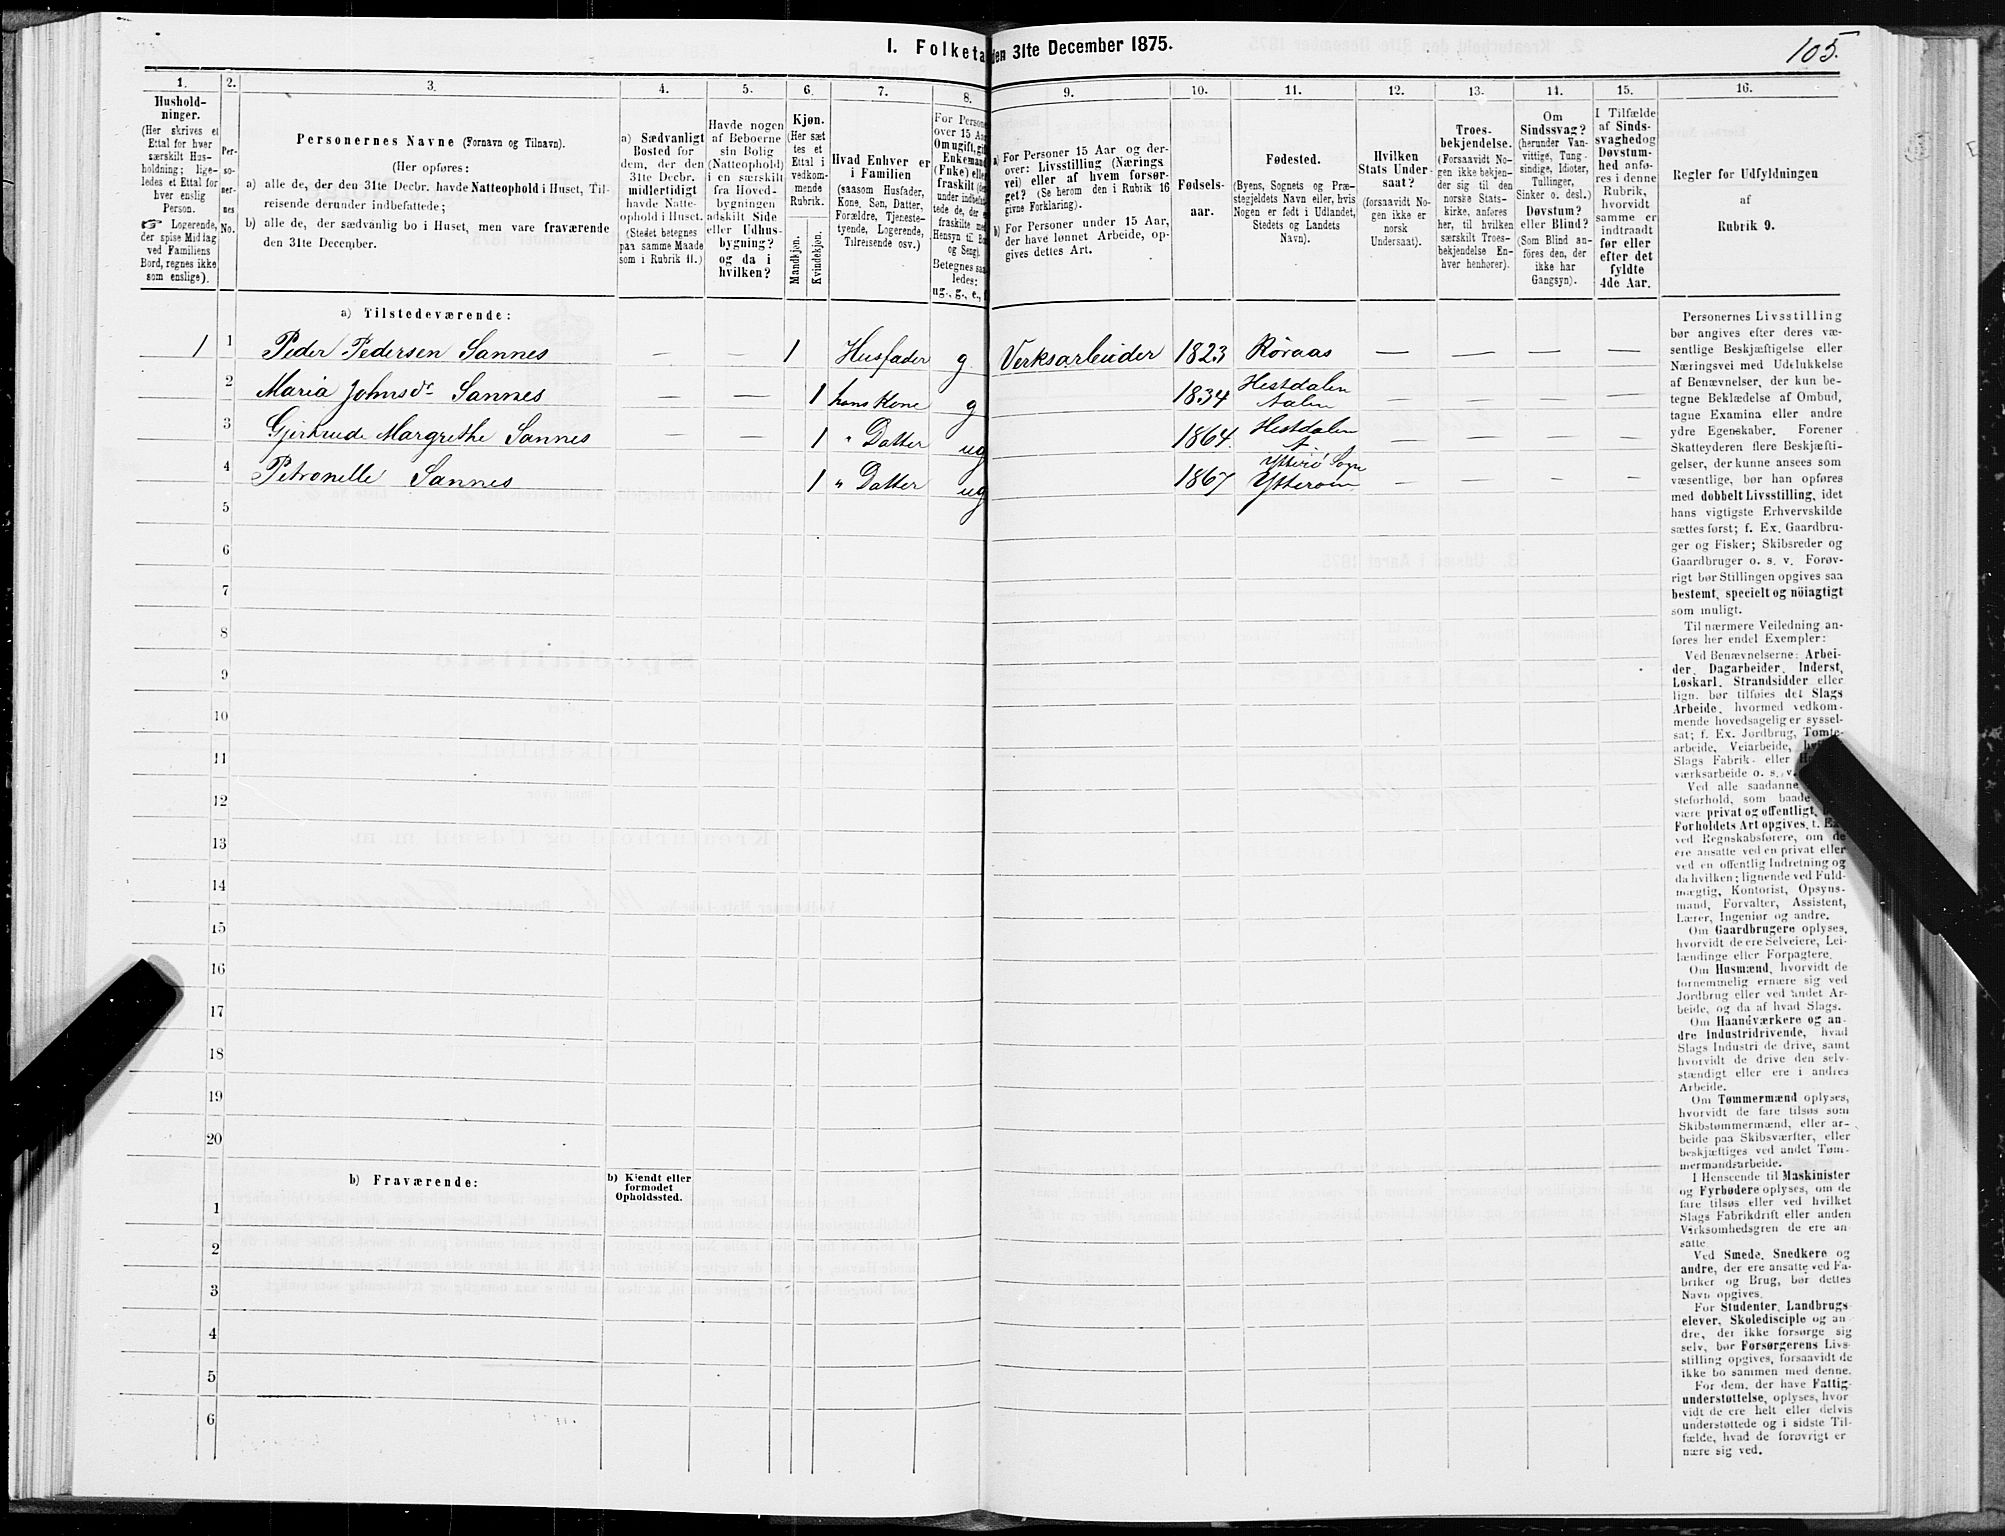 I. Folketa den 31te December 1875.
105.
1.
2.
3.
4.
5.
6.
7.
8.
9.
10.
11.
12.
13.
14.
15.
16.
Hushold-
ninger.
(Her skrives et
Ettal for hver
særskilt Hus-
holdning; lige-
ledes et Ettal for
hver enslig
Person.
☞ Logerende,
der spise Middag
ved Familiens
Bord, regnes ikke
som enslige).
Per-
so-
ner-
nes
No.
Personernes Navne (Fornavn og Tilnavn).
(Her opføres:
a) alle de, der den 31te Decbr. havde Natteophold i Huset, Til-
reisende derunder indbefattede;
b) alle de, der sædvanlig bo i Huset, men vare fraværende
den 31te December.
a) Sædvanligt
Bosted for
dem, der den
31te Decbr.
midlertidigt
havde Natte-
ophold i Huset.
(Stedet betegnes
paa samme Maade
som i Rubrik 11.)
Havde nogen
af Beboerne
sin Bolig
(Natteophold)
i en særskilt
fra Hoved-
bygningen
adskilt Side
eller Udhus-
bygning?
og da i
hvilken?
Kjøn.
(Her sæt
tes et
Ettal i
vedkom-
mende
Rubrik.
Mandkjøn.
Kvindekjøn.
Hvad Enhver er
i Familien
(saasom Husfader,
Kone, Søn, Datter,
Forældre, Tjeneste-
tyende, Logerende,
Tilreisende osv.)
For Persone
over 15 Aa
Om ugift, gif
Enkemand
(Enke) elle
fraskilt (de
under indbefat-
tede de, der e
fraskilte me
Hensyn til Bo
og Seng).
Betegnes saa
ledes:
ug., g., e., f
a) For Personer 15 Aar og der-
over: Livsstilling (Nærings
vei) eller af hvem forsør-
get? (Se herom den i Rubrik 16
givne Forklaring).
b) For Personer under 15 Aar,
der have lønnet Arbeide, op-
gives dettes Art.
Fødsels-
aar.
Fødested.
(Byens, Sognets og Præ-
stegjeldets Navn eller, hvis
Nogen er født i Udlandet,
Stedets og Landets
Navn).
Hvilken
Stats Under-
saat?
(forsaavidt No-
gen ikke er
norsk
Undersaat).
Troes-
bekjendelse.
(Forsaavidt No-
gen ikke bekjen-
der sig til den
norske Stats-
kirke, anføres
her, til hvilken
særskilt Troes-
bekjendelse En-
hver henhører).
Om
Sindssvag?
(herunder Van-
vittige, Tung-
sindige, Idioter,
Tullinger,
Sinker o. desl.)
Døvstum?
eller Blind?
(Som Blind an-
føres den, der
ikke har
Gangsyn).
I Tilfælde
af Sinds-
svaghed og
Døvstum-
hed anfø-
res i denne
Rubrik,
hvorvidt
samme er
indtraadt
før eller
efter det
fyldte
4de Aar.
Regler for Udfyldningen
af
Rubrik 9.
a) Tilstedeværende:
1 1 Peder Pedersen Sannes — — 1 Husfader g Verksarbeider 1823 Röraas — — — —
2 Maria Johnsdr Sannes — — 1 hans Kone g 1834 Hestdalen Aalen — — — —
3 Gjertrude Margrethe Sannes — — 1 " Datter ug 1864. Hestdalen A — — — —
4 Petronelle Sannes 1 " Datter ug 1867 Ytterö Sogn Ytteröen — — — —
5
6
7
8
9
10
11
12
13
14
15
16
17
18
19
20
b) Fraværende:
b) Kjendt eller
formodet
Opholdssted.
1
2
3
4
5
6
Personernes Livsstilling
bør angives efter deres væ-
sentlige Beskjæftigelse eller
Næringsvei med Udelukkelse
af Benævnelser, der kun be-
tegne Beklædelse af Ombud,
tagne Examina eller andre
ydre Egenskaber. Forener
Skatteyderen flere Beskjæfti-
gelser, der kunne ansees som
væsentlige, bør han opføres
med dobbelt Livsstilling, idet
hans vigtigste Erhvervskilde
sættes først; f. Ex. Gaardbru-
ger og Fisker; Skibsreder og
Gaardbruger o. s. v. Forøv-
rigt bør Stillingen opgives saa
bestemt, specielt og nöiagtigt
som muligt.
Til nærmere Veiledning an-
føres her endel Exempler:
Ved Benævnelserne: Arbei-
der, Dagarbeider, Inderst,
Løskarl, Strandsidder eller
lign. bør tilføies det Slags
Arbeide, hvormed vedkom-
mende hovedsagelig er syssel-
sat; f. Ex. Jordbrug, Tomte-
arbeide, Veiarbeide,
Slags Fabrik- eller
værksarbeide o. s. v.
Ved alle saadanne
steforhold, som baade
være privat og offentligt,
Forholdets Art opgives, t. Ex.
ved Regnskabsførere, om de
ere ansatte ved en privat eller
ved en offentlig Indretning og
da hvilken; lignende ved Fuld-
mægtig, Kontorist, Opsyns-
mand, Forvalter, Assistent,
Lærer, Ingeniør og andre.
Om Gaardbrugere oplyses,
hvorvidt de ere Selveiere, Lei-
lændinge eller Forpagtere.
Om Husmænd, hvorvidt de
fornemmelig ernære sig ved
Jordbrug eller ved andet Ar-
beide, og da af hvad Slags.
Om Haandværkere og an-
dre Industridrivende, hvad
Slags Industri de drive, samt
hvorvidt de drive den selv-
stændigt eller ere i andres
Arbeide.
Om Tømmermænd oplyses,
hvorvidt de fare tilsøs som
Skibstømmermænd, eller ar-
beide paa Skibsværfter, eller
beskjæftiges ved andet Tøm-
mermandsarbeide.
I Henseende til Maskinister
og Fyrbødere oplyses, om de
fare tilsøs eller ved hvilket
Slags Fabrikdrift eller anden
Virksomhedsgren de ere an-
satte
Ved Smede, Snedkere og
andre, der ere ansatte ved Fa-
briker og Brug, bør dettes
Navn opgives.
For Studenter, Landbrugs-
elever, Skoledisciple og an-
dre, der ikke forsørge sig
selv, bør Forsørgerens Livs-
stilling opgives, forsaavidt de
ikke bo sammen med denne.
For dem, der have Fattig-
understøttelse, oplyses, hvor
vidt de ere helt eller delvis
understøttede og i sidste Til-
fælde, hvad de forøvrigt er
nære sig ved.